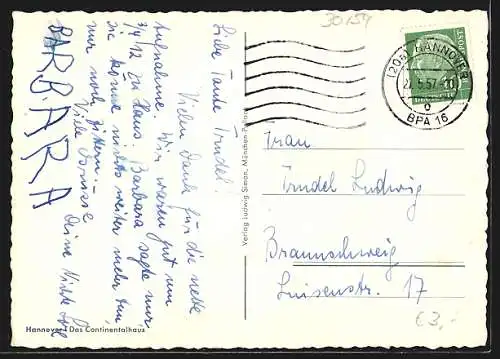 30154
Liebe Tante Trudel!
Vielen Dank für die nette
Aufnahme. Wir waren gut um
3/4 12 zu Haus. Barbara sagte nur,
sie könne nichts weiter mehr tun,
nur noch zittern.
Viele Grüsse
Deine Nichte
BARBARA
Hannover, Das Continentalhaus
Verlag Ludwig Simon, München-Pullach
(20a) HANNOVER
22.5.57
b
BPA 16
DEUTSCHE POST
Frau
Trudel Ludwig
Braunschweig
Luisenstr. 17
€3,-